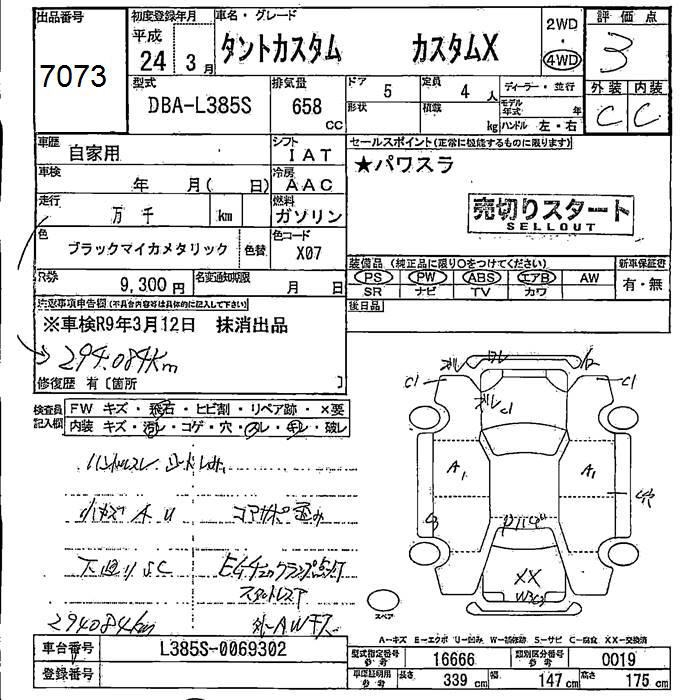 出品番号
7073
初度登録年月
平成
24年 3月
車名・グレード
タントカスタム カスタムX
2WD
・
4WD
評価点
3
外装 内装
C C
型式
DBA-L385S
排気量
658 cc
ドア 5
定員 4 人
形状
積載 kg
ディーラー・並行
モデル年式 年
ハンドル 左・右
車歴
自家用
シフト
IAT
車検
年 月( 日)
冷房
AAC
走行
万 千 km
燃料
ガソリン
色
ブラックマイカメタリック
色替
色コード
X07
R券
9,300 円
名変通知期限
月 日
セールスポイント(正常に機能するものに限ります)
★パワスラ
売切りスタート
SELLOUT
装備品 (純正品に限り○をつけてください)
PS PW ABS エアB AW
SR ナビ TV カワ
新車保証書
有・無
後日品
注意事項申告欄(不具合内容等は具体的に記入して下さい)
※車検R9年3月12日 抹消出品
294.084Km
修復歴 有〔箇所 〕
検査員記入欄
FW キズ・飛石・ヒビ割・リペア跡・×要
内装 キズ・汚レ・コゲ・穴・スレ・キレ・破レ
ハンドルスレ
小キズ A U
コアサポ歪み
下廻り S.C
294084km
車台番号
L385S-0069302
登録番号
C1 C1
A1 A1
XX
W3
スペア
A-キズ E-エクボ U-凹み W-補修跡 S-サビ C-腐食 XX-交換済
型式指定番号
参考
16666
類別区分番号
参考
0019
車庫証明用
参考
長さ 339 cm
幅 147 cm
高さ 175 cm